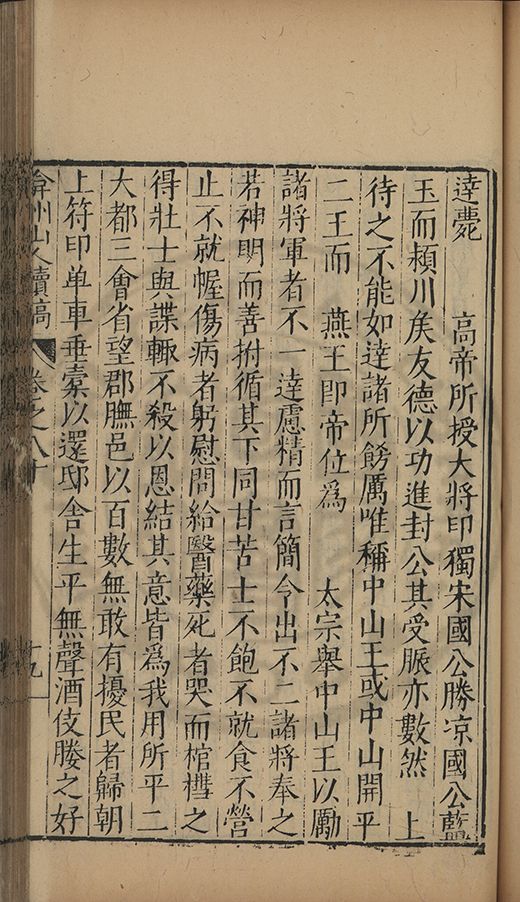 達薨　　高帝所授大將印獨宋國公勝凉國公藍
玉而頴川矦友德以功進封公其受脤亦數然　上
待之不能如達諸所餝厲唯稱中山王或中山開平
二王而　燕王即帝位爲　　太宗舉中山王以勵
諸將軍者不一達慮精而言簡令出不二諸將奉之
若神明而善拊循其下同甘苦士不飽不就食不營
止不就幄傷病者躬慰問給醫藥死者哭而棺槥之
得壯士與諜輙不殺以恩結其意皆爲我用所平二
大都三會省望郡膴邑以百數無敢有擾民者歸朝
上符印单車垂槖以還邸舍生平無聲酒伎媵之好
弇州山人續稿　卷之八十　十九